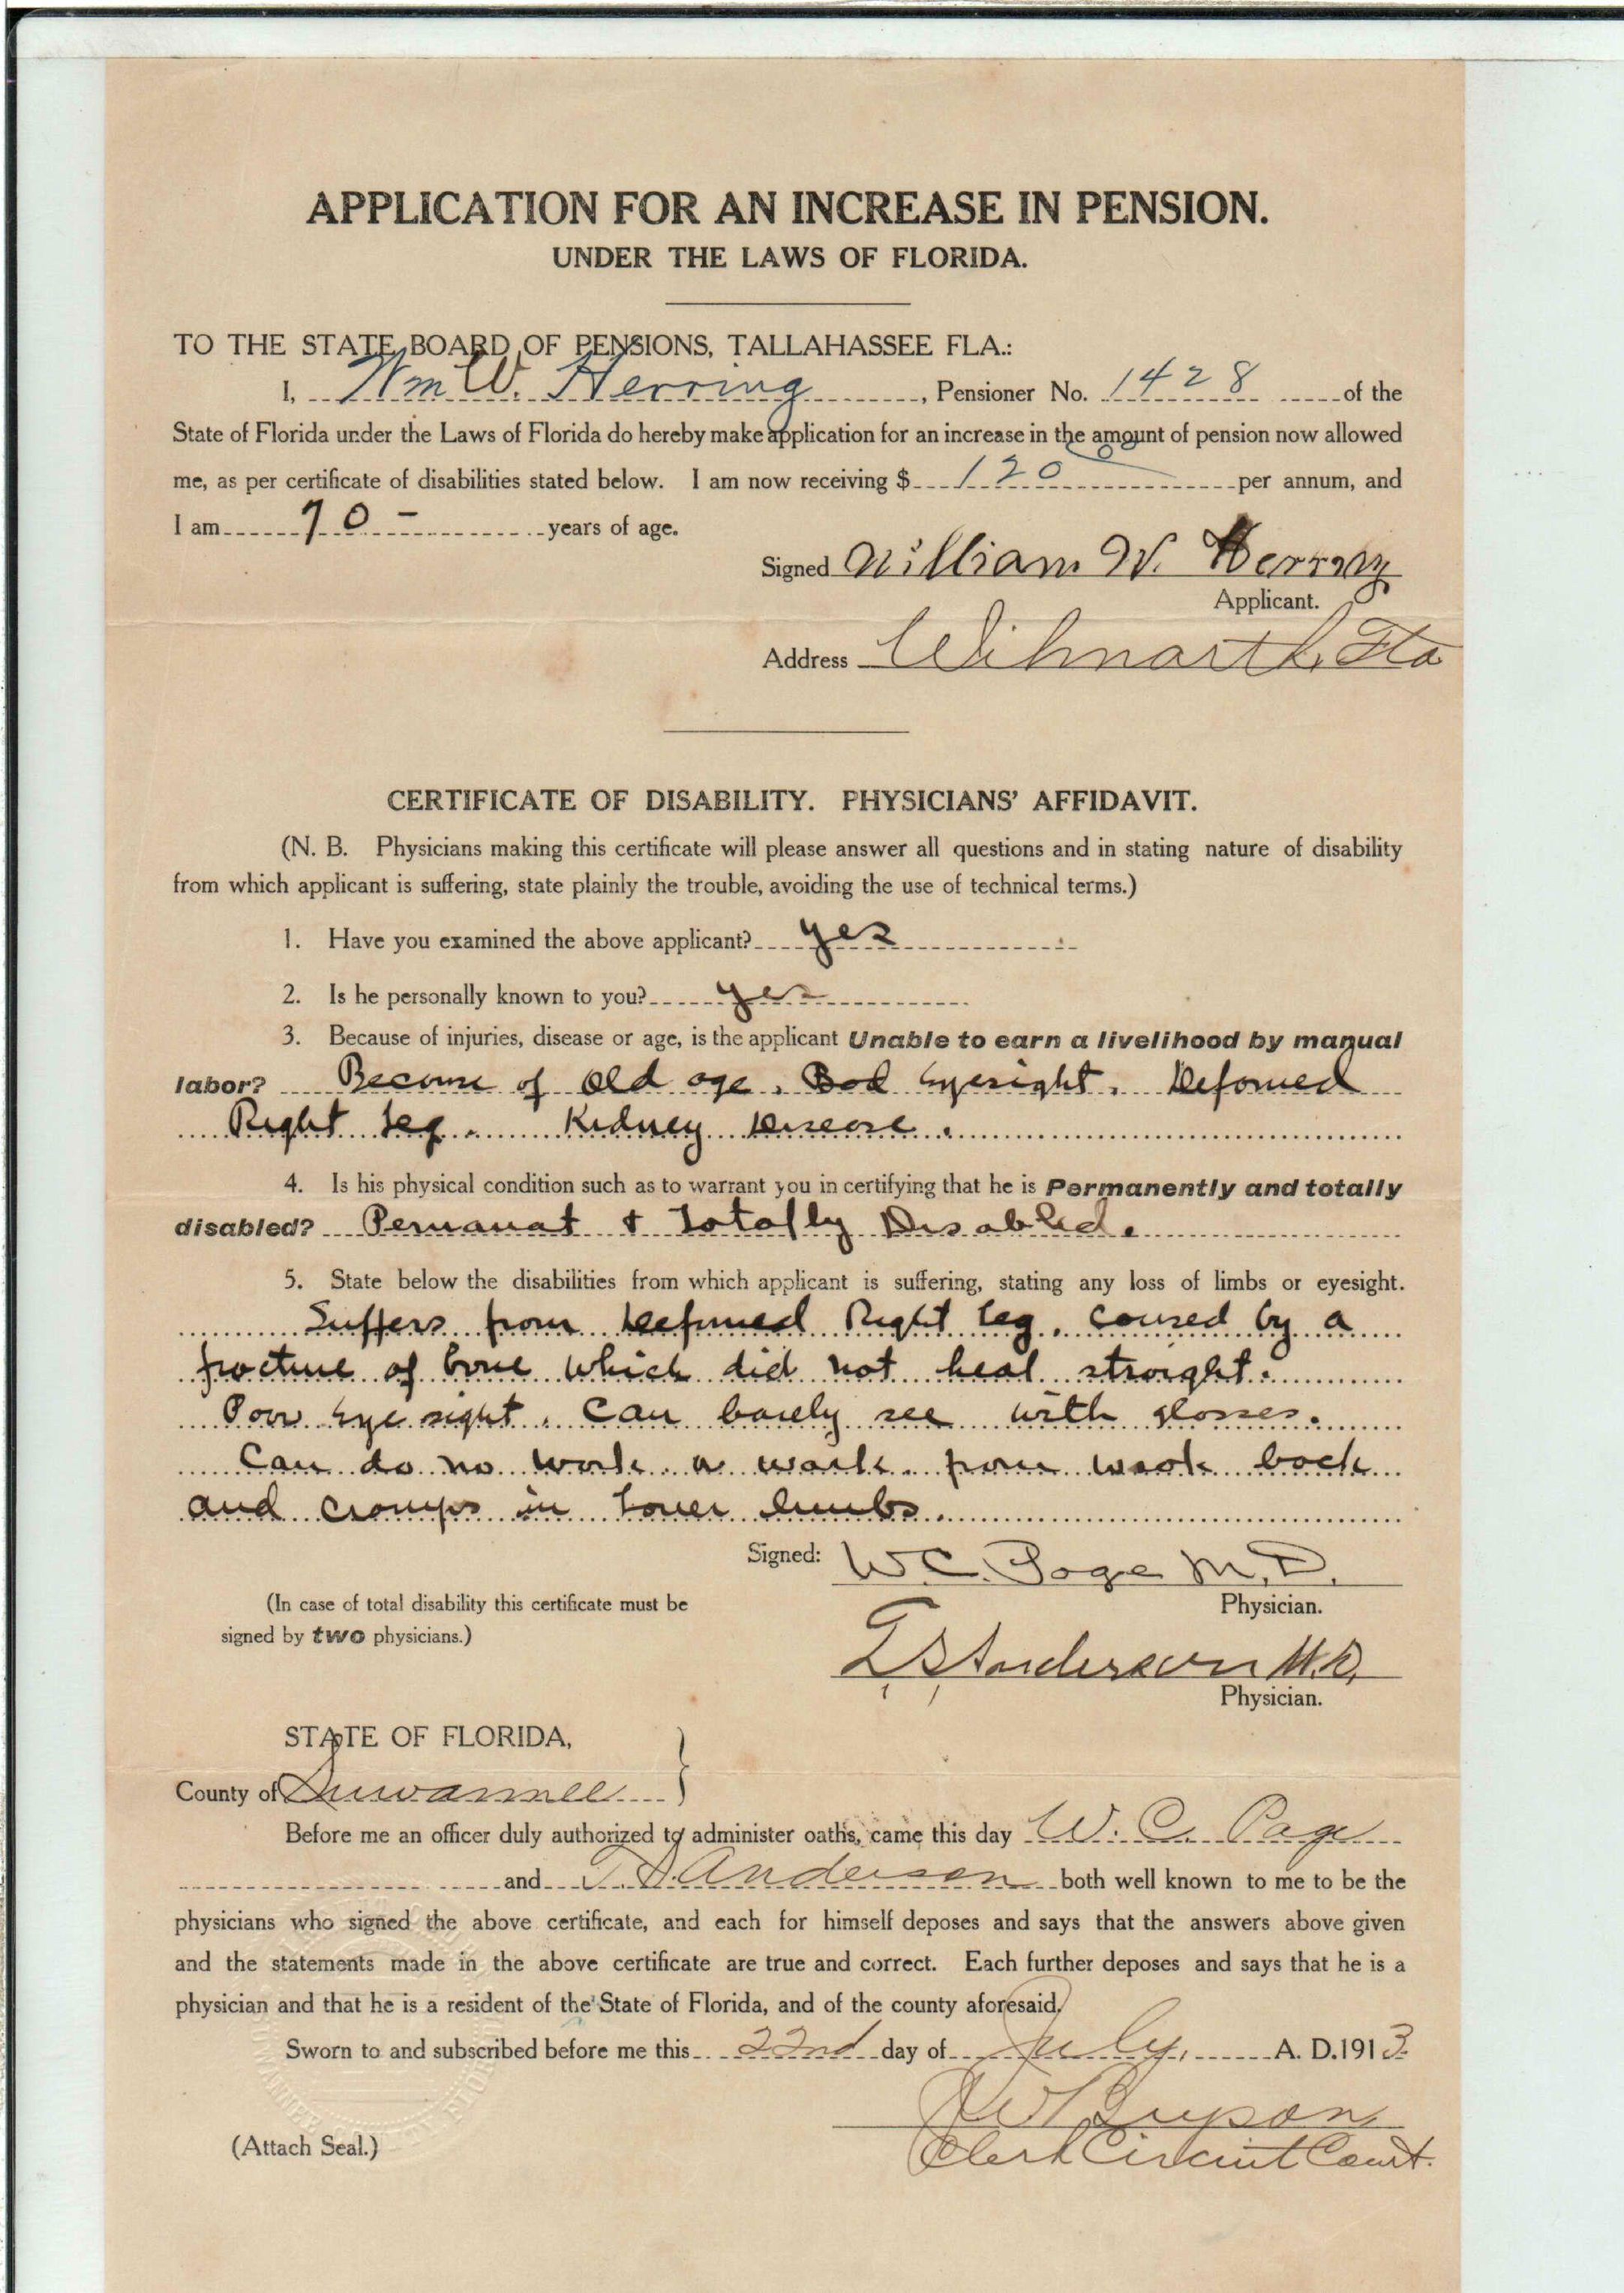 APPLICATION FOR AN INCREASE IN PENSION.
UNDER THE LAWS OF FLORIDA.
TO THE STATE BOARD OF PENSIONS, TALLAHASSEE FLA.:
I, Wm W. Herring, Pensioner No. 1428 of the
State of Florida under the Laws of Florida do hereby make application for an increase in the amount of pension now allowed
me, as per certificate of disabilities stated below. I am now receiving $ 120 00 per annum, and
I am 70 - years of age.
Signed William W. Herring
Applicant.
Address Wilmarth, Fla
CERTIFICATE OF DISABILITY. PHYSICIANS' AFFIDAVIT.
(N. B. Physicians making this certificate will please answer all questions and in stating nature of disability
from which applicant is suffering, state plainly the trouble, avoiding the use of technical terms.)
1. Have you examined the above applicant? yes
2. Is he personally known to you? yes
3. Because of injuries, disease or age, is the applicant Unable to earn a livelihood by manual
labor? Because of old age. Bad Eyesight. Deformed
Right Leg. Kidney Disease.
4. Is his physical condition such as to warrant you in certifying that he is Permanently and totally
disabled? Permanat + Totally Disabled.
5. State below the disabilities from which applicant is suffering, stating any loss of limbs or eyesight.
Suffers from Deformed Right Leg. caused by a
fracture of bone which did not heal straight.
Poor Eye sight. Can barely see with glasses.
Can do no work from weak back
and cramps in Lower limbs.
Signed: W.C. Page M.D.
Physician.
(In case of total disability this certificate must be
signed by two physicians.)
T. S. Anderson M.D.
Physician.
STATE OF FLORIDA,
County of Suwannee
Before me an officer duly authorized to administer oaths, came this day W. C. Page
and T. S. Anderson both well known to me to be the
physicians who signed the above certificate, and each for himself deposes and says that the answers above given
and the statements made in the above certificate are true and correct. Each further deposes and says that he is a
physician and that he is a resident of the State of Florida, and of the county aforesaid.
Sworn to and subscribed before me this 22nd day of July, A. D. 1913.
Bryson
(Attach Seal.)
Clerk Circuit Court.